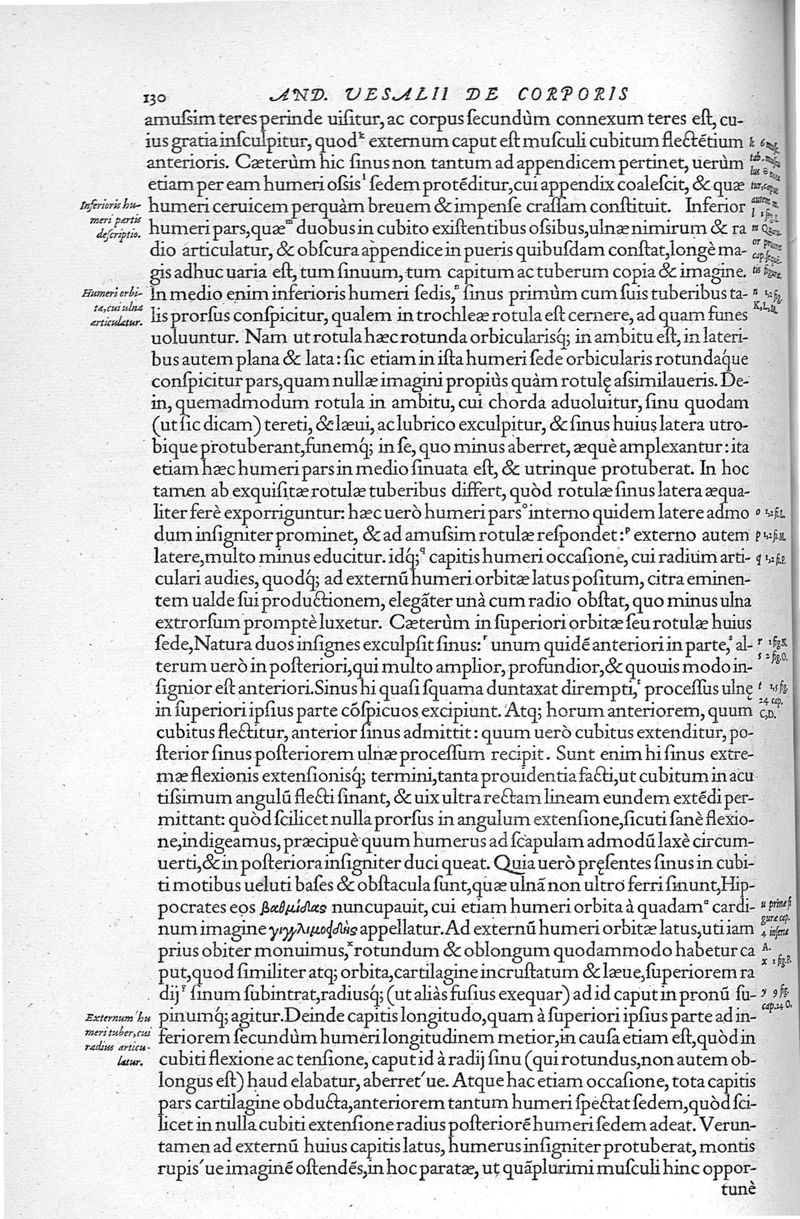 130 AND. VESALII DE CORPORIS
amuſsim teres perinde uiſitur, ac corpus ſecundùm connexum teres eſt, cu-
ius gratia inſculpitur, quod k externum caput eſt muſculi cubitum flectẽtium
anterioris. Cæterùm hic ſinus non tantum ad appendicem pertinet, uerùm
etiam per eam humeri oſsis l ſedem protẽditur, cui appendix coaleſcit, & quæ
Inferioris hu-
meri partis
deſcriptio.
humeri ceruicem perquàm breuem & impenſe craſſam conſtituit. Inferior
humeri pars, quæ m duobus in cubito exiſtentibus oſsibus, ulnæ nimirum & ra
dio articulatur, & obſcura appendice in pueris quibuſdam conſtat, longè ma-
gis adhuc uaria eſt, tum ſinuum, tum capitum ac tuberum copia & imagine.
Humeri orbi-
ta, cui ulna
articulatur.
In medio enim inferioris humeri ſedis, n ſinus primùm cum ſuis tuberibus ta-
lis prorſus conſpicitur, qualem in trochleæ rotula eſt cernere, ad quam funes
uoluuntur. Nam ut rotula hæc rotunda orbicularisq́; in ambitu eſt, in lateri-
bus autem plana & lata: ſic etiam in iſta humeri ſede orbicularis rotundaq́ue
conſpicitur pars, quam nullæ imagini propiùs quàm rotulę aſsimilaueris. De-
in, quemadmodum rotula in ambitu, cui chorda aduoluitur, ſinu quodam
(ut ſic dicam) tereti, & læui, ac lubrico exculpitur, & ſinus huius latera utro-
bique protuberant, funemq́; in ſe, quo minus aberret, æquè amplexantur: ita
etiam hæc humeri pars in medio ſinuata eſt, & utrinque protuberat. In hoc
tamen ab exquiſitæ rotulæ tuberibus differt, quòd rotulæ ſinus latera æqua-
liter ferè exporriguntur: hæc uerò humeri pars o interno quidem latere admo
dum inſigniter prominet, & ad amuſsim rotulæ reſpondet: p externo autem
latere, multo minus educitur. idq́; q capitis humeri occaſione, cui radium arti-
culari audies, quodq́; ad externũ humeri orbitæ latus poſitum, citra eminen-
tem ualde ſui productionem, elegãter unà cum radio obſtat, quo minus ulna
extrorſum promptè luxetur. Cæterùm in ſuperiori orbitæ ſeu rotulæ huius
ſede, Natura duos inſignes exculpſit ſinus: r unum quidẽ anteriori in parte, s al-
terum uerò in poſteriori, qui multo amplior, profundior, & quouis modo in-
ſignior eſt anteriori. Sinus hi quaſi ſquama duntaxat dirempti, t proceſſus ulnę
in ſuperiori ipſius parte cõſpicuos excipiunt. Atq; horum anteriorem, quum
cubitus flectitur, anterior ſinus admittit: quum uerò cubitus extenditur, po-
ſterior ſinus poſteriorem ulnæ proceſſum recipit. Sunt enim hi ſinus extre-
mæ flexionis extenſionisq́; termini, tanta prouidentia facti, ut cubitum in acu
tiſsimum angulũ flecti ſinant, & uix ultra rectam lineam eundem extẽdi per-
mittant: quòd ſcilicet nulla prorſus in angulum extenſione, ſicuti ſanè flexio-
ne, indigeamus, præcipuè quum humerus ad ſcapulam admodũ laxè circum-
uerti, & in poſteriora inſigniter duci queat. Quia uerò pręſentes ſinus in cubi-
ti motibus ueluti baſes & obſtacula ſunt, quæ ulnã non ultro ferri ſinunt, Hip-
pocrates eos βαθμίδας nuncupauit, cui etiam humeri orbita à quadam u cardi-
num imagine γιγγλιμοειδὴς appellatur. Ad externũ humeri orbitæ latus, uti iam
prius obiter monuimus, x rotundum & oblongum quodammodo habetur ca
put, quod ſimiliter atq; orbita, cartilagine incruſtatum & læue, ſuperiorem ra
dij y ſinum ſubintrat, radiusq́; (ut aliàs fuſius exequar) ad id caput in pronũ ſu-
Externum hu
meri tuber, cui
radius articu-
latur.
pinumq́; agitur. Deinde capitis longitudo, quam à ſuperiori ipſius parte ad in-
feriorem ſecundùm humeri longitudinem metior, in cauſa etiam eſt, quòd in
cubiti flexione ac tenſione, caput id à radij ſinu (qui rotundus, non autem ob-
longus eſt) haud elabatur, aberret'ue. Atque hac etiam occaſione, tota capitis
pars cartilagine obducta, anteriorem tantum humeri ſpectat ſedem, quòd ſci-
licet in nulla cubiti extenſione radius poſteriorẽ humeri ſedem adeat. Verun-
tamen ad externũ huius capitis latus, humerus inſigniter protuberat, montis
rupis'ue imaginẽ oſtendẽs, in hoc paratæ, ut quãplurimi muſculi hinc oppor-
tunè